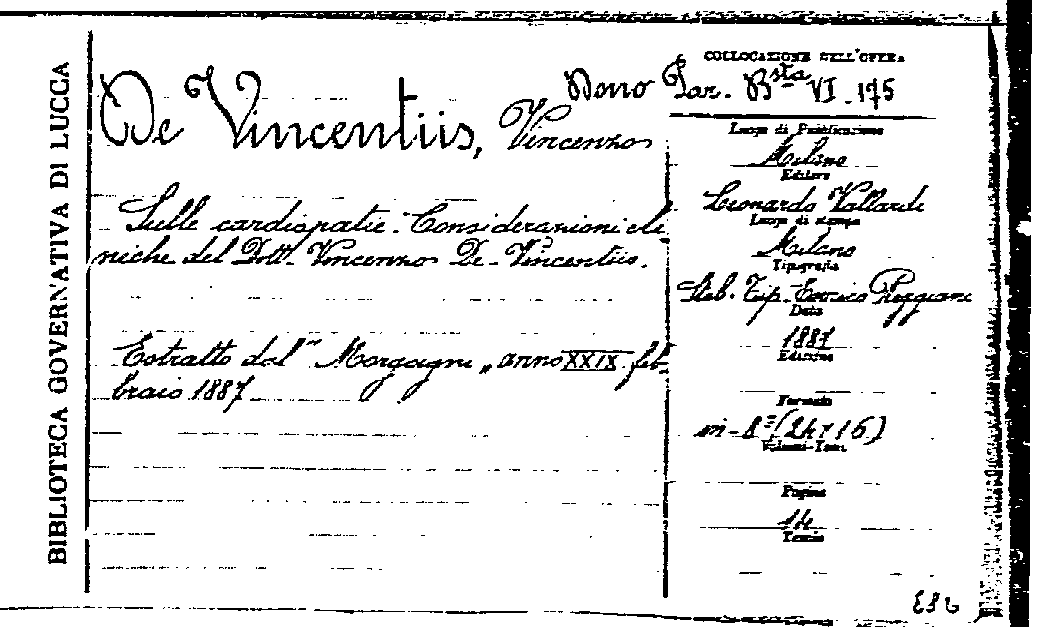 BIBLIOTECA GOVERNATIVA DI LUCCA
De Vincentiis, Vincenzo
Sulle cardiopatie. Considerazioni cli
niche del Dott. Vincenzo De-Vincentiis.
Estratto dal "Morgagni" anno XXIX feb
braio 1887
COLLOCAZIONE DELL'OPERA
Dono Par. Bsta VI. 175
Luogo di Pubblicazione
Milano
Editore
Leonardo Vallardi
Luogo di stampa
Milano
Tipografia
Stab. Tip. Enrico Reggiani
Data
1887
Edizione
Formato
in-8° (24x16)
Volumi-Tomi
Pagine
14